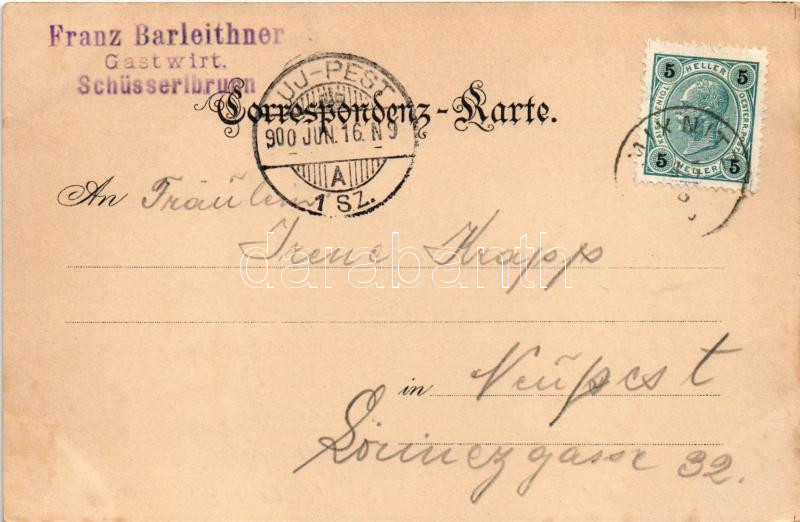 Franz Barleithner
Gastwirt.
Schüsserlbrunn
UJ-PEST
900 JUN. 16. N 9
A
1 SZ.
Correspondenz-Karte.
5 HELLER 5
5 HELLER 5
WIXNITZ
An Fräulein
Irene Krapp
darabanth
in Neüpest
Lörinczgasse 32.